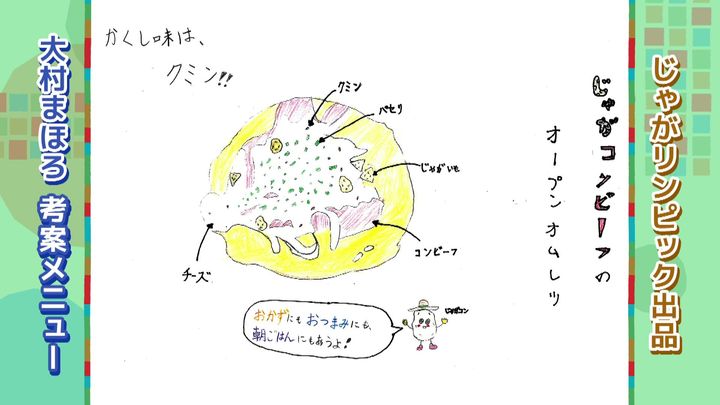 じゃがリンピック出品
じゃがコンビーフの
オープンオムレツ
かくし味は、
クミン!!
クミン
パセリ
じゃがいも
コンビーフ
チーズ
おかずにもおつまみにも、
朝ごはんにもあうよ!
大村まほろ 考案メニュー